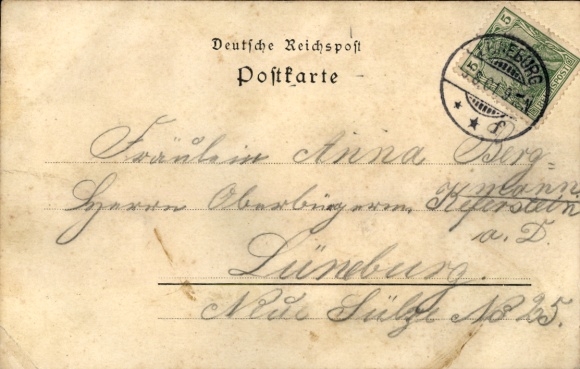 Deutsche Reichspost
Postkarte
5
5
LÜNEBURG
Fräulein Anna Berg-
mann.
Herrn Oberbürgerm. Keferstein
a. D.
Lüneburg.
Neue Sülze No 25.